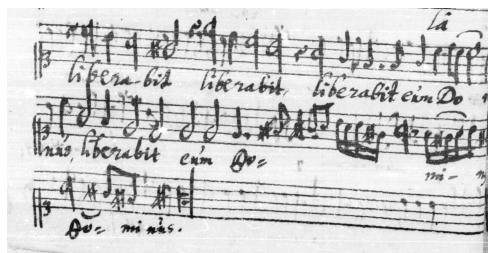 la
libera-bit liberabit, liberabit eum Do
nus, liberabit eum Do= mi-n
Do= minus.